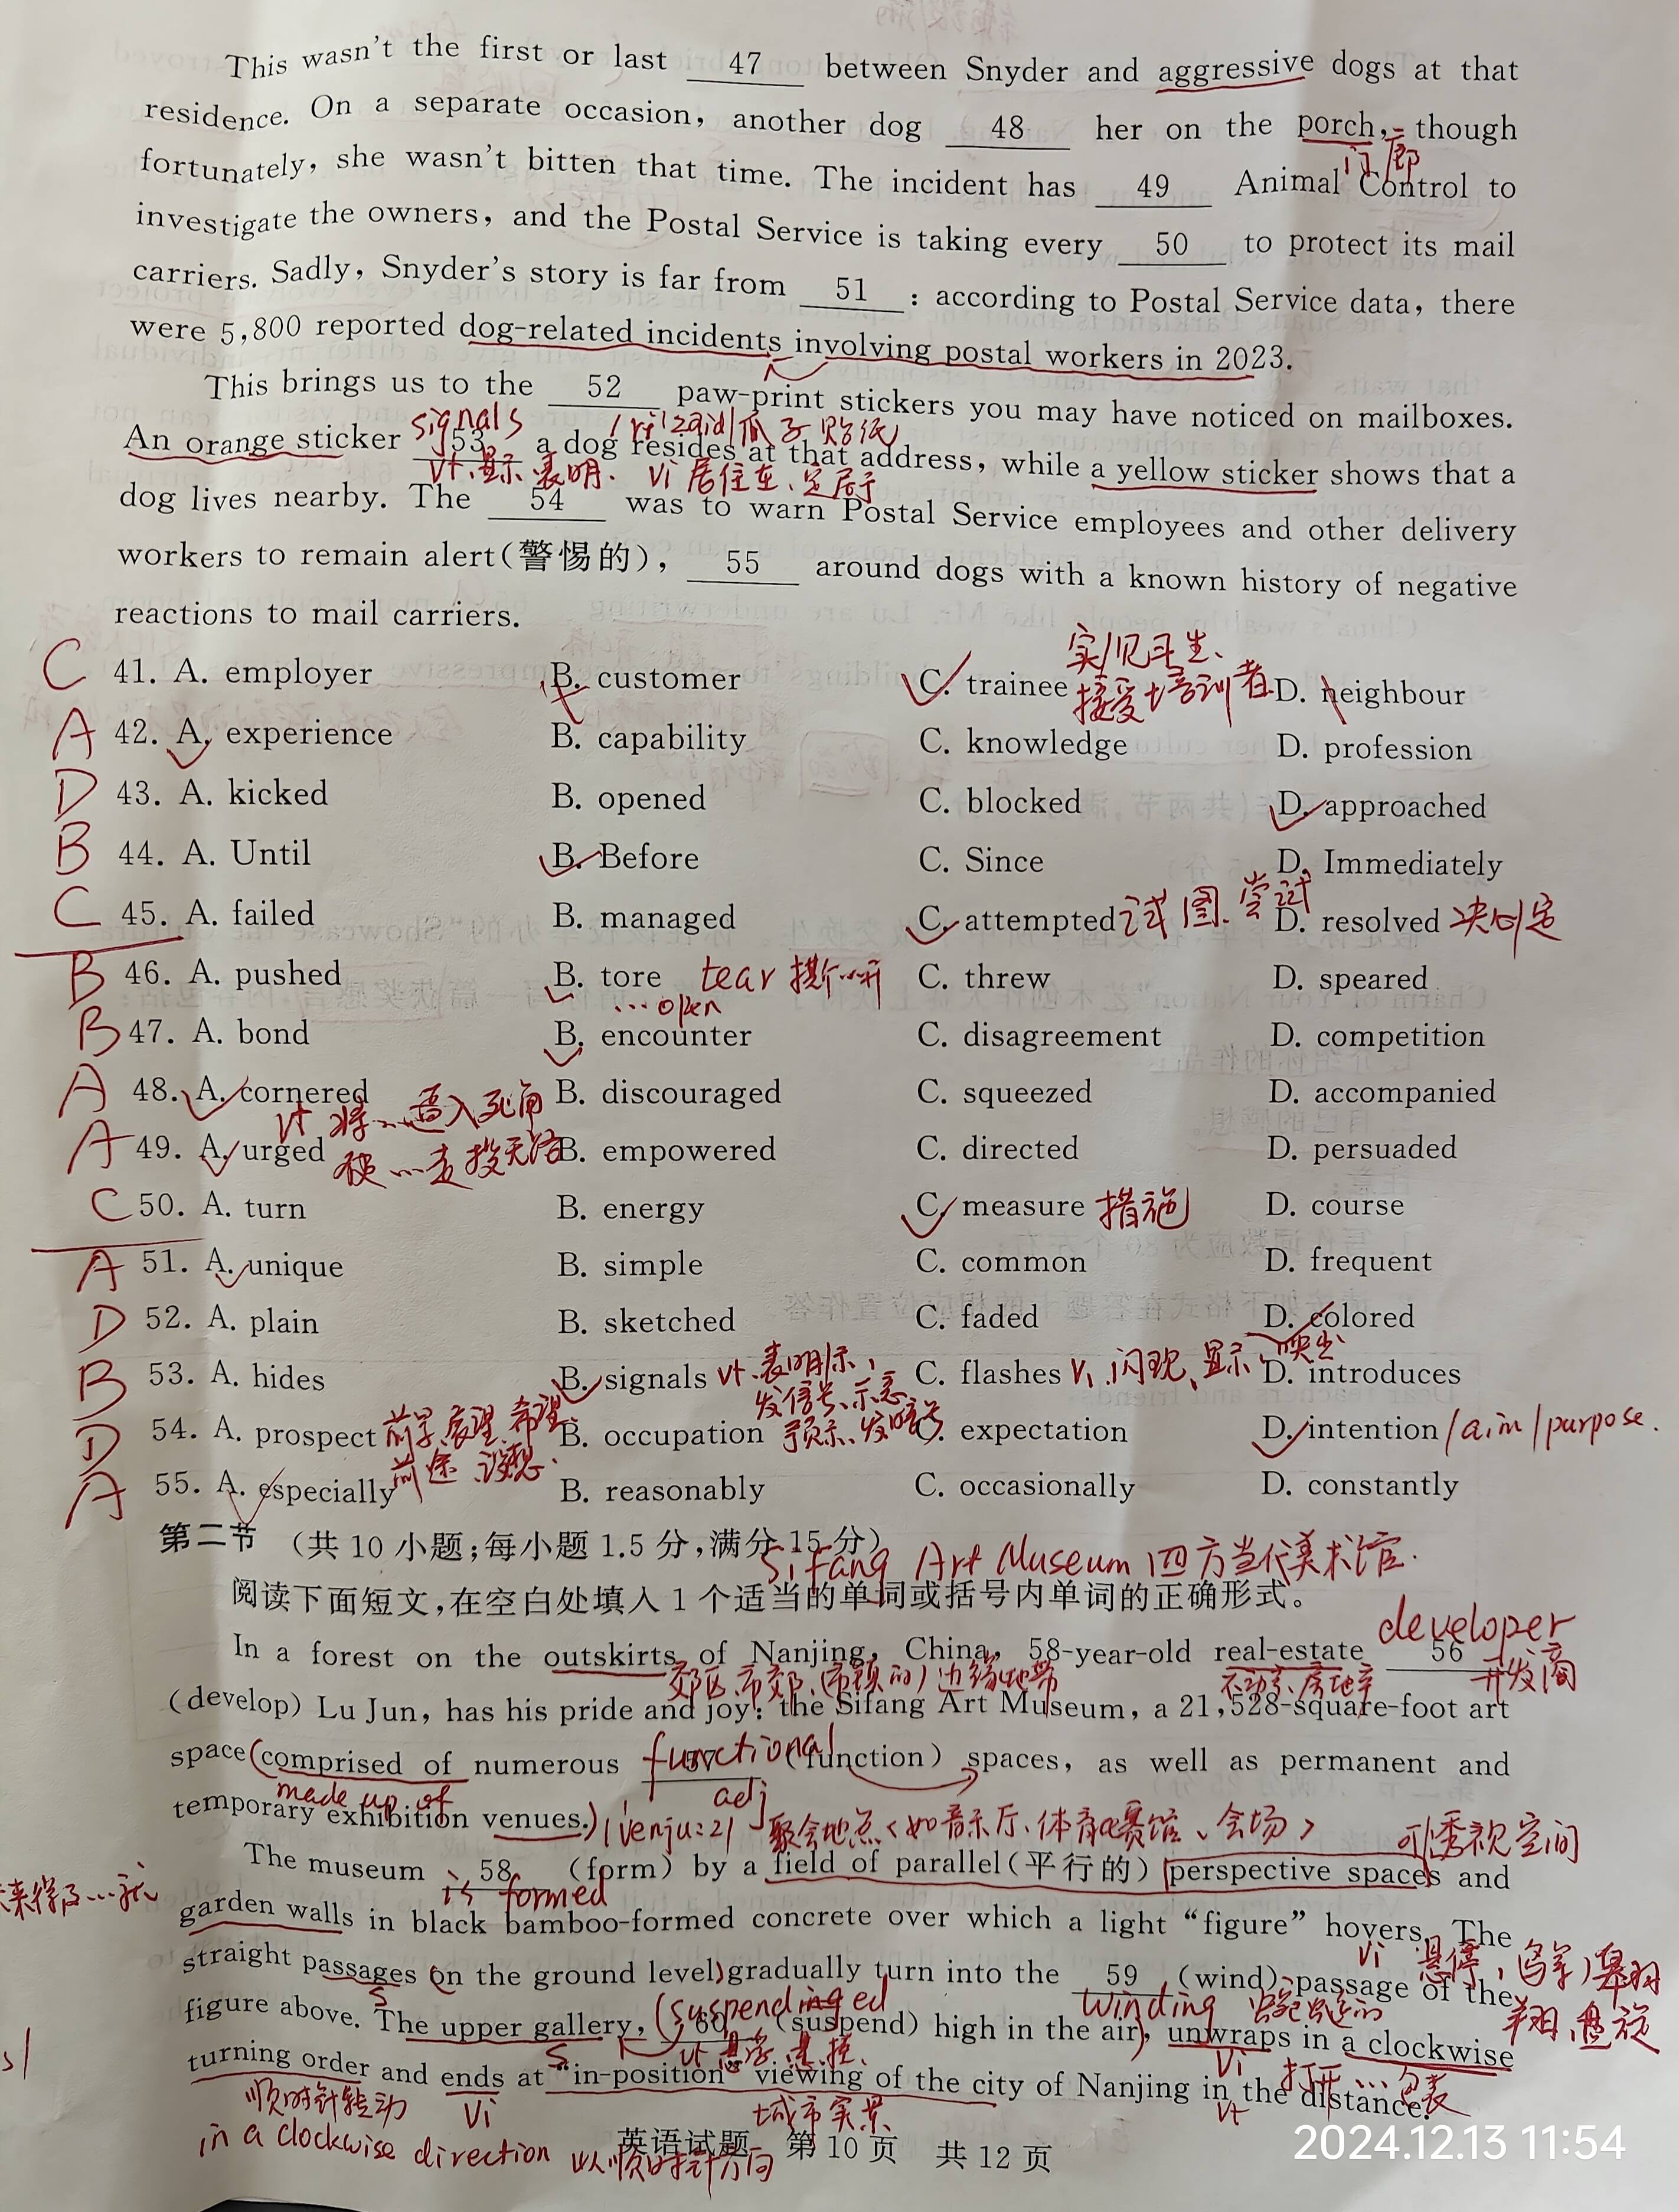 This wasn't the first or last 47 between Snyder and aggressive dogs at that
residence. On a separate occasion, another dog 48 her on the porch, though
门廊
fortunately, she wasn't bitten that time. The incident has 49 Animal Control to
investigate the owners, and the Postal Service is taking every 50 to protect its mail
carriers. Sadly, Snyder's story is far from 51 : according to Postal Service data, there
were 5,800 reported dog-related incidents involving postal workers in 2023.
This brings us to the 52 paw-print stickers you may have noticed on mailboxes.
signals /ri'zaid/ 爪子贴纸
An orange sticker 53 a dog resides at that address, while a yellow sticker shows that a
vt.显示.表明. vi 居住在、定居于
dog lives nearby. The 54 was to warn Postal Service employees and other delivery
workers to remain alert(警惕的), 55 around dogs with a known history of negative
reactions to mail carriers.
C 41. A. employer B. customer C. trainee 实习生、接受培训者 D. neighbour
A 42. A. experience B. capability C. knowledge D. profession
D 43. A. kicked B. opened C. blocked D. approached
B 44. A. Until B. Before C. Since D. Immediately
C 45. A. failed B. managed C. attempted 试图.尝试 D. resolved 决定
B 46. A. pushed B. tore tear 撕…开 C. threw D. speared
…open
B 47. A. bond B. encounter C. disagreement D. competition
A 48. A. cornered B. discouraged C. squeezed D. accompanied
vt 将…逼入死角
A 49. A. urged B. empowered C. directed D. persuaded
使…走投无路
C 50. A. turn B. energy C. measure 措施 D. course
A 51. A. unique B. simple C. common D. frequent
D 52. A. plain B. sketched C. faded D. colored
B 53. A. hides B. signals vt.表明示, C. flashes v.闪现、显示、映出 D. introduces
发信号、示意
D 54. A. prospect 前景.展望.希望. B. occupation 预示、发暗号 C. expectation D. intention/aim/purpose.
前途 设想.
A 55. A. especially B. reasonably C. occasionally D. constantly
第二节 (共10小题;每小题1.5分,满分15分)
Sifang Art Museum 四方当代美术馆.
阅读下面短文,在空白处填入1个适当的单词或括号内单词的正确形式。
developer
In a forest on the outskirts of Nanjing, China, 58-year-old real-estate 56
郊区.市郊.(市镇的)边缘地带 不动产、房地产 开发商
(develop) Lu Jun, has his pride and joy: the Sifang Art Museum, a 21,528-square-foot art
functional
space comprised of numerous 57 (function) spaces, as well as permanent and
made up of adj
temporary exhibition venues. /'venju:z/ 聚会地点<如音乐厅、体育比赛馆、会场>
可透视空间
The museum 58 (form) by a field of parallel(平行的) perspective spaces and
is formed
garden walls in black bamboo-formed concrete over which a light “figure” hovers. The
vi 悬停,(鸟等)翱翔、盘旋
straight passages on the ground level gradually turn into the 59 (wind) passage of the
winding 蜿蜒的
figure above. The upper gallery, 60 (suspend) high in the air, unwraps in a clockwise
suspended
vt 悬浮.悬挂. vi 打开…包裹 vt
turning order and ends at “in-position” viewing of the city of Nanjing in the distance.
顺时针转动 vi 城市实景
in a clockwise direction 以顺时针方向
英语试题 第10页 共12页
2024.12.13 11:54